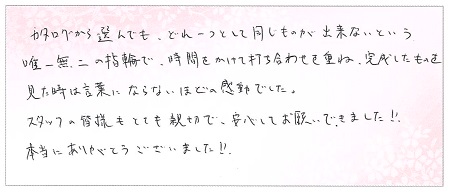 カタログから選んでも、どれ一つとして同じものが出来ないという
唯一無二の指輪で、時間をかけて打ち合わせを重ね、完成したものを
見た時は言葉にならないほどの感動でした。
スタッフの皆様もとても親切で、安心してお願いできました!!
本当にありがとうございました!!